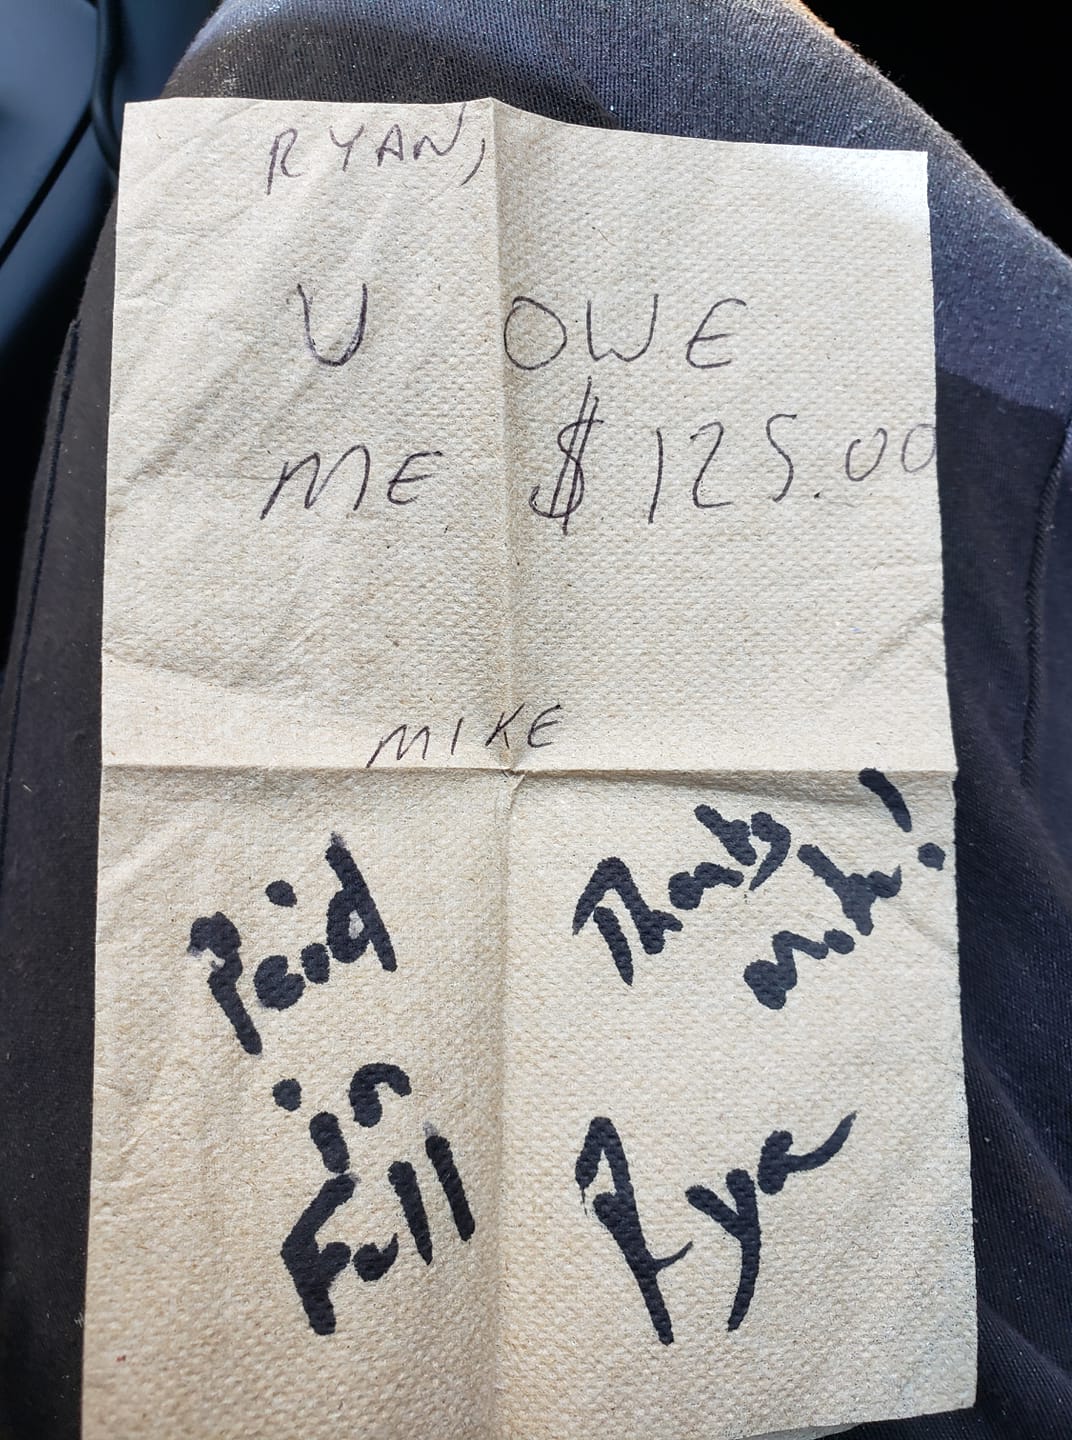 RYAN,
U OWE
ME $125.00
MIKE
Paid
in
Full
Thanks
Mike!
Rya